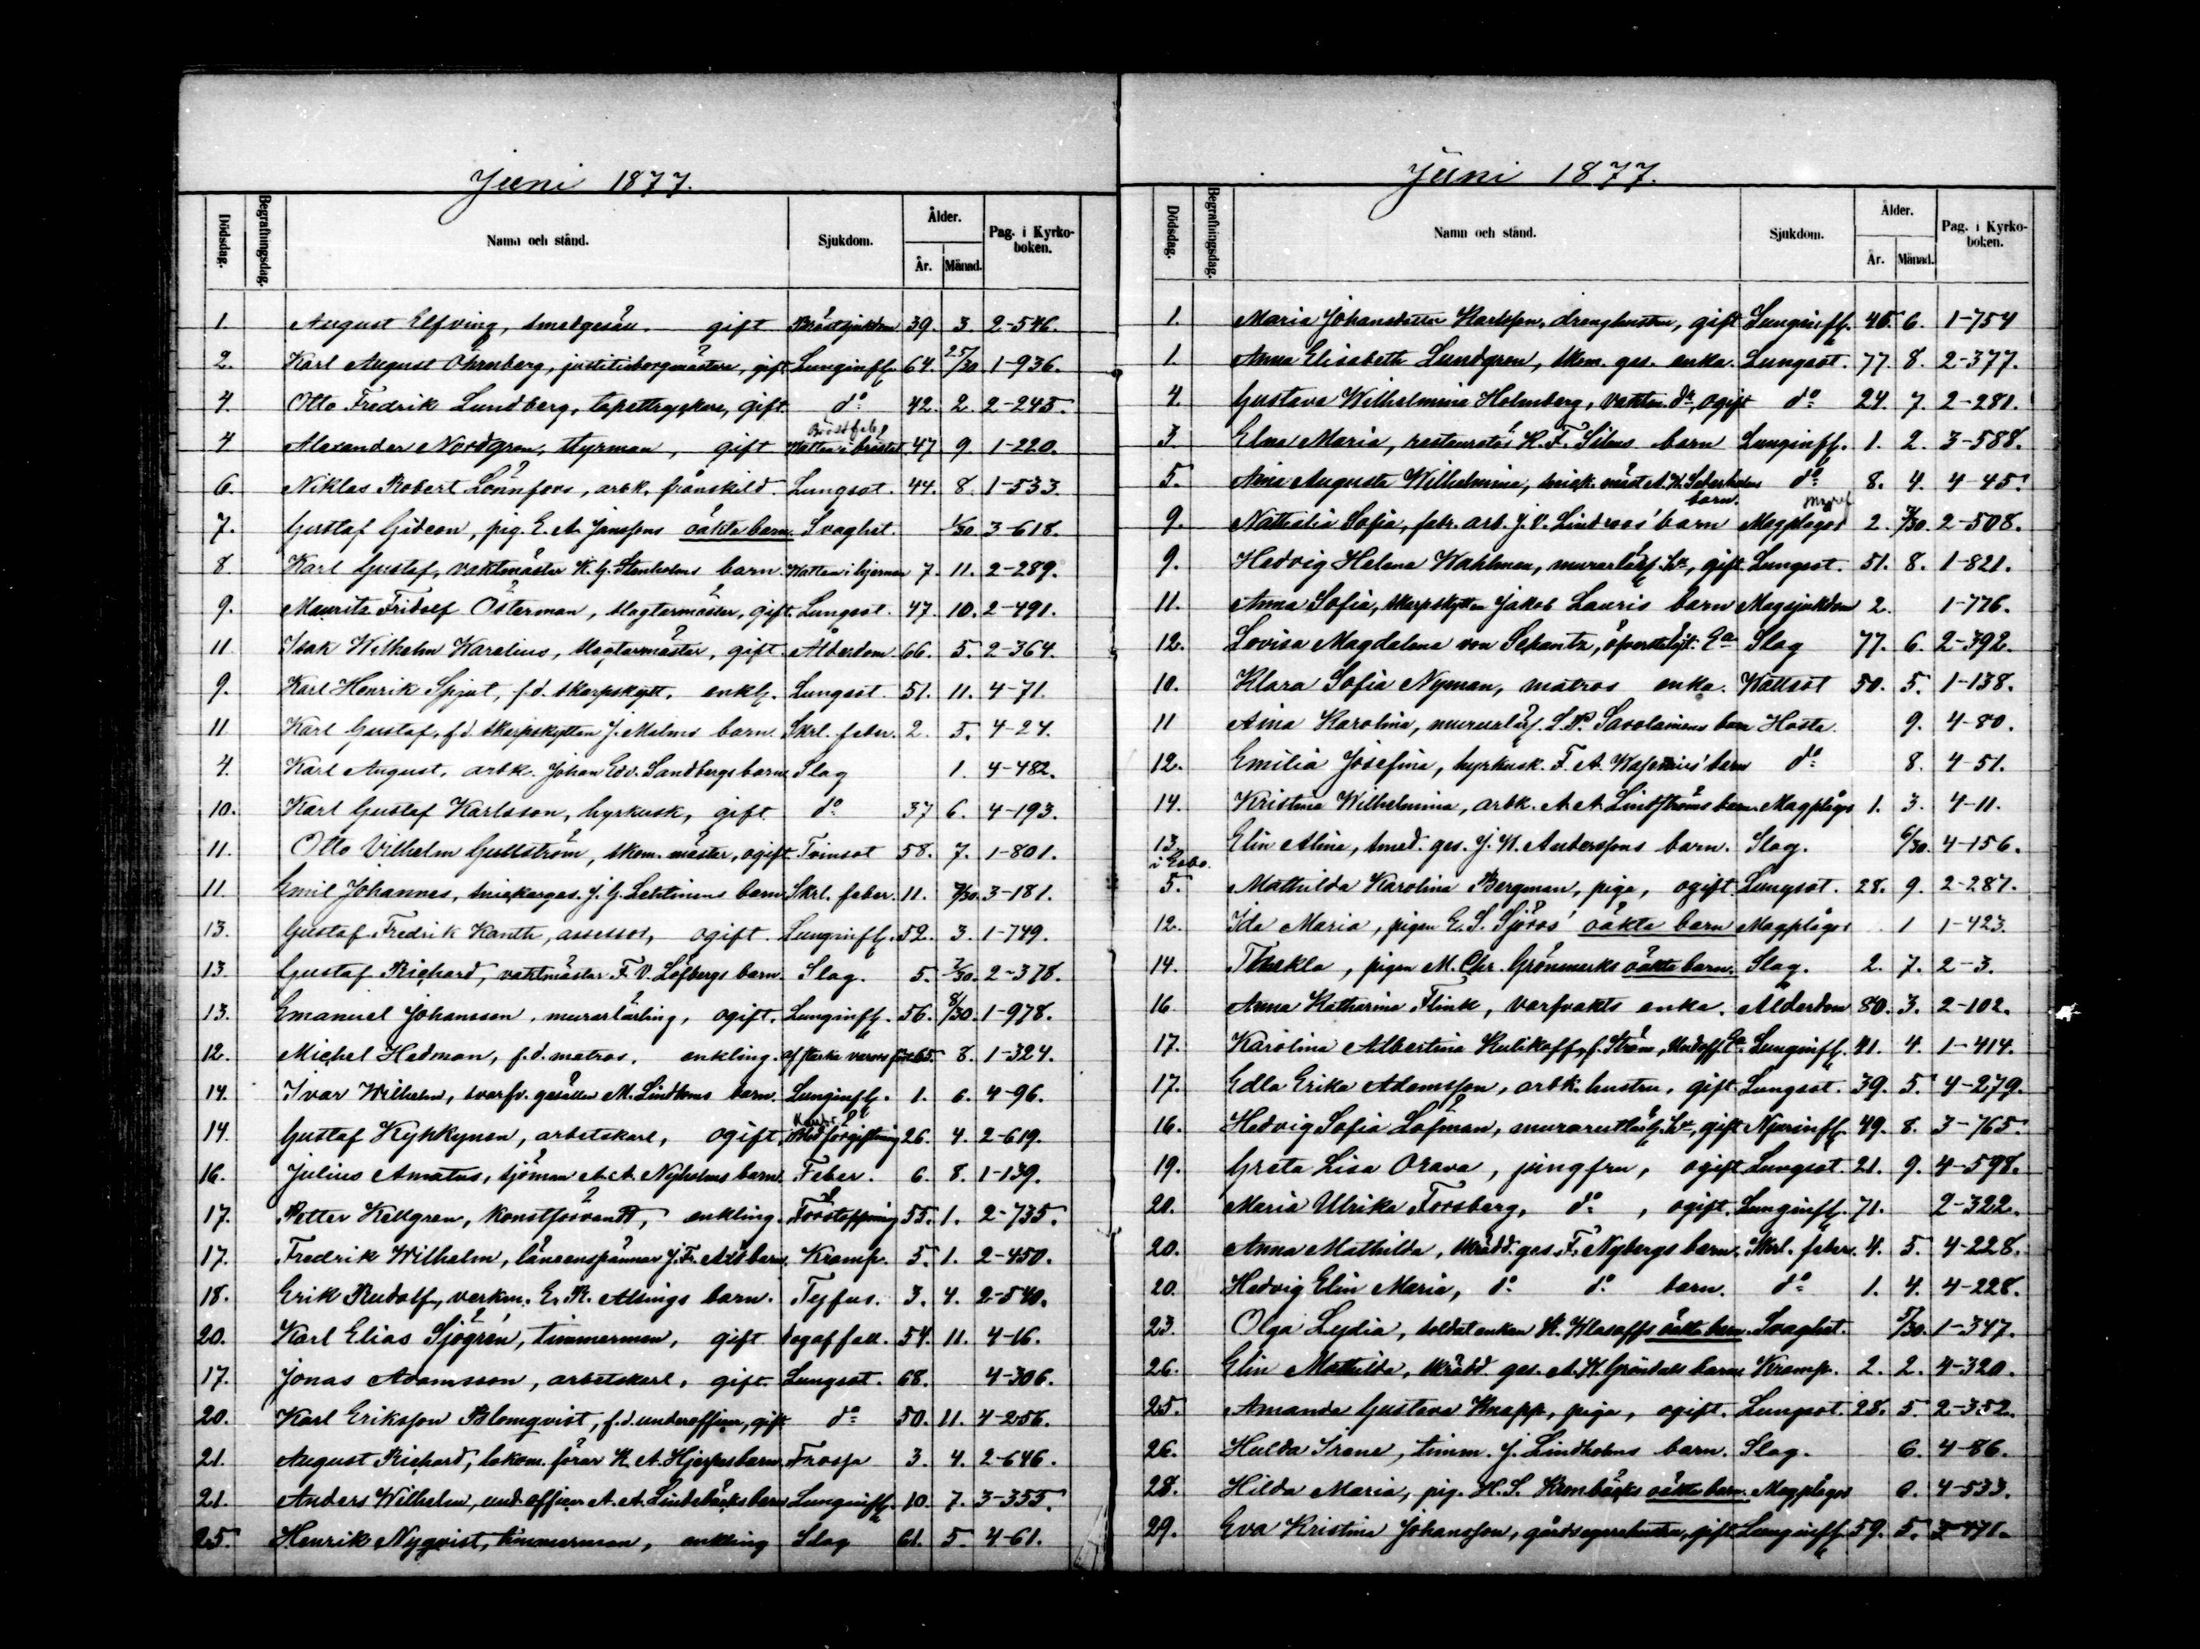 Juni 1877.
Dödsdag. Begrafningsdag. Namn och stånd. Sjukdom. Ålder. År. Månad. Pag. i Kyrko-boken.
1. August Elfving, smedgesäll gift Bröstsjukdom 39. 3. 2-546.
2. Karl August Öhrnberg, justitieborgmästare, gift Lunginfl. 64. 25/30 1-936.
4. Otto Fredrik Lundberg, tapettryckare, gift. do 42. 2. 2-245.
4. Alexander Nordgren, styrman, gift Vatten i bröstet 47. 9. 1-220.
6. Niklas Robert Lönnfors, arbk. frånskild. Lungsot. 44. 8. 1-533.
7. Gustaf Gideon, pig. E. A. Janssons oäkta barn. Svaghet. 1/30 3-618.
8. Karl Gustaf, vaktmäster K. G. Stenholms barn. Vatten i hjernan 7. 11. 2-289.
9. Maurits Fridolf Österman, slagtarmäster, gift. Lungsot. 47. 10. 2-491.
11. Isak Wilhelm Karelius, slagtarmäster, gift. Ålderdom. 66. 5. 2-364.
9. Karl Henrik Spjut, f.d. skarpskytt, enkl. Lungsot. 51. 11. 4-71.
11. Karl Gustaf, f.d. skarpskytten J. Malms barn. Skrl. feber. 2. 5. 4-24.
4. Karl August, arbk. Johan Edv. Sandbergs barn Slag 1. 4-482.
10. Karl Gustaf Karlsson, hyrkusk, gift do 37 6. 4-193.
11. Otto Vilhelm Gullström, skom. mäster, ogift. Tvinsot 58. 7. 1-801.
11. Emil Johannes, snickarges. J. G. Lehtinens barn. Skrl. feber. 11. 3-181.
13. Gustaf Fredrik Kanth, assessor, ogift. Lunginfl. 52. 3. 1-749.
13. Gustaf Richard, vaktmästar F. V. Löfbergs barn. Slag. 5. 2/30 2-378.
13. Emanuel Johansson, murarlärling, ogift. Lunginfl. 56. 8/30. 1-978.
12. Michel Hedman, f.d. matros, enkling. af starka varors 65. 8. 1-324.
14. Ivar Wilhelm, svarfv. gesällen M. Lindboms barn. Lunginfl. 1. 6. 4-96.
14. Gustaf Kyhkynen, arbetskarl, ogift Blodförgiftning 26. 4. 2-619.
16. Julius Amatus, sjöman A. A. Nyholms barn. Feber. 6. 8. 1-139.
17. Petter Kellgren, konstförvandt, enkling. Förstoppning 55. 1. 2-735.
17. Fredrik Wilhelm, länsenspännar J. Fr. barn. Kramp. 5. 1. 2-450.
18. Erik Rudolf, verkm. E. R. Allings barn. Tyfus. 3. 4. 2-540.
20. Karl Elias Sjögrén, timmerman, gift. Dogaffall. 54. 11. 4-16.
17. Jonas Adamsson, arbetskarl, gift. Lungsot. 68. 4-306.
20. Karl Eriksson Blomqvist, f.d. underofficer, gift do 50. 11. 4-256.
21. August Richard, lokom. förar K. A. Hjerpes barn. Frossa 3. 4. 2-646.
21. Anders Wilhelm, und.officer A. A. Lindebäcks barn Lunginfl. 10. 7. 3-355.
25. Henrik Nyqvist, timmerman, enkling Slag 61. 5. 4-61.
Juni 1877.
Dödsdag. Begrafningsdag. Namn och stånd. Sjukdom. Ålder. År. Månad. Pag. i Kyrko-boken.
1. Maria Johansdotter Karlsson, drenghustru, gift Lunginfl. 46. 6. 1-754
1. Anna Elisabeth Lundgren, skom. ges. enka. Lungsot. 77. 8. 2-377.
4. Gustava Wilhelmina Holmberg, vaktm. dr, ogift do 24. 7. 2-281.
3. Elna Maria, restauratör K. F. Siléns barn Lunginfl. 1. 2. 3-588.
5. Aina Augusta Wilhelmina, snick. mäst. A. K. Sederholms barn. do 8. 4. 4-45.
9. Nathalia Sofia, fabr. arb. J. V. Lindroos' barn Magplågor 2. 2-508.
9. Hedvig Helena Wahlman, murarlärl. hu, gift Lungsot. 51. 8. 1-821.
11. Anna Sofia, skarpskytten Jakob Lauris barn Magsjukdom 2. 1-776.
12. Lovisa Magdalena von Schantz, öfverstelöjt. Ea Slag 77. 6. 2-392.
10. Klara Sofia Nyman, matros enka. Vattsot 50. 5. 1-138.
11 Aina Karolina, murarlärl. S. P. Savolainens barn Hosta. 9. 4-80.
12. Emilia Josefina, hyrkusk. F. A. Wasenius' barn do 8. 4-51.
14. Kristina Wilhelmina, arbk. A. A. Lindströms barn. Magplågor 1. 3. 4-11.
13. i Esbo. Elin Alina, smed. ges. J. W. Anderssons barn. Slag. 6/30. 4-156.
5. Mathilda Karolina Bergman, piga, ogift. Lungsot. 28. 9. 2-287.
12. Ida Maria, pigan E. S. Sjöros' oäkta barn Magplågor 1 1-423.
14. Thekla, pigan M. Chr. Grönmarks oäkta barn. Slag. 2. 7. 2-3.
16 Anna Katharina Flink, varfvakts enka. Alderdom 80. 3. 2-102.
17. Karolina Albertina Kulikoff, f. Ström, Undoff. Ea. Lunginfl. 41. 4. 1-414.
17. Edla Erika Adamsson, arbk. hustru, gift Lungsot. 39. 5 4-279.
16. Hedvig Sofia Löfman, murarestlärl. hu, gift Njurinfl. 49. 8. 3-765.
19. Greta Lisa Orava, jungfru, ogift Lungsot 21. 9. 4-598.
20. Maria Ulrika Forsberg, do, ogift. Lunginfl. 71. 2-322.
20. Anna Mathilda, skrädd. ges. F. Nybergs barn. Skrl. feber. 4. 5. 4-228.
20. Hedvig Elin Maria, do do barn. do 1. 4. 4-228.
23. Olga Lydia, soldatenkan K. Wlasoffs oäkta barn. Svaghet. 5/30. 1-347.
26. Elin Mathilda, skrädd. ges. A. K. Gröndals barn Kramp. 2. 2. 4-320.
25. Amanda Gustava Knapp, piga, ogift. Lungsot. 28. 5. 2-352.
26. Hulda Irene, timm. J. Lindholms barn. Slag. 6. 4-86.
28. Hilda Maria, pig. H. S. oäkta barn. Magplågor 4-533.
29. Eva Kristina Johansson, gårdsegarehustru, gift Lunginfl. 59. 5.